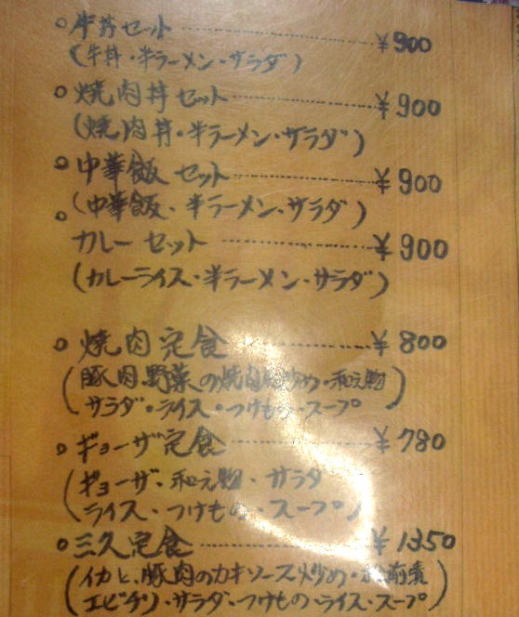 ○ 牛丼セット ------ ¥900
(牛丼・半ラーメン・サラダ)
○ 焼肉丼セット ------ ¥900
(焼肉丼・半ラーメン・サラダ)
○ 中華飯セット ------ ¥900
(中華飯・半ラーメン・サラダ)
○ カレーセット ------ ¥900
(カレーライス・半ラーメン・サラダ)
○ 焼肉定食 ------ ¥800
(豚肉、野菜の焼肉炒め・和え物
サラダ・ライス・つけもの・スープ)
○ ギョーザ定食 ------ ¥780
(ギョーザ・和え物・サラダ
ライス・つけもの・スープ)
○ 三久定食 ------ ¥1350
(イカと、豚肉のカキソース炒め・
エビチリ・サラダ・つけもの・ライス・スープ)